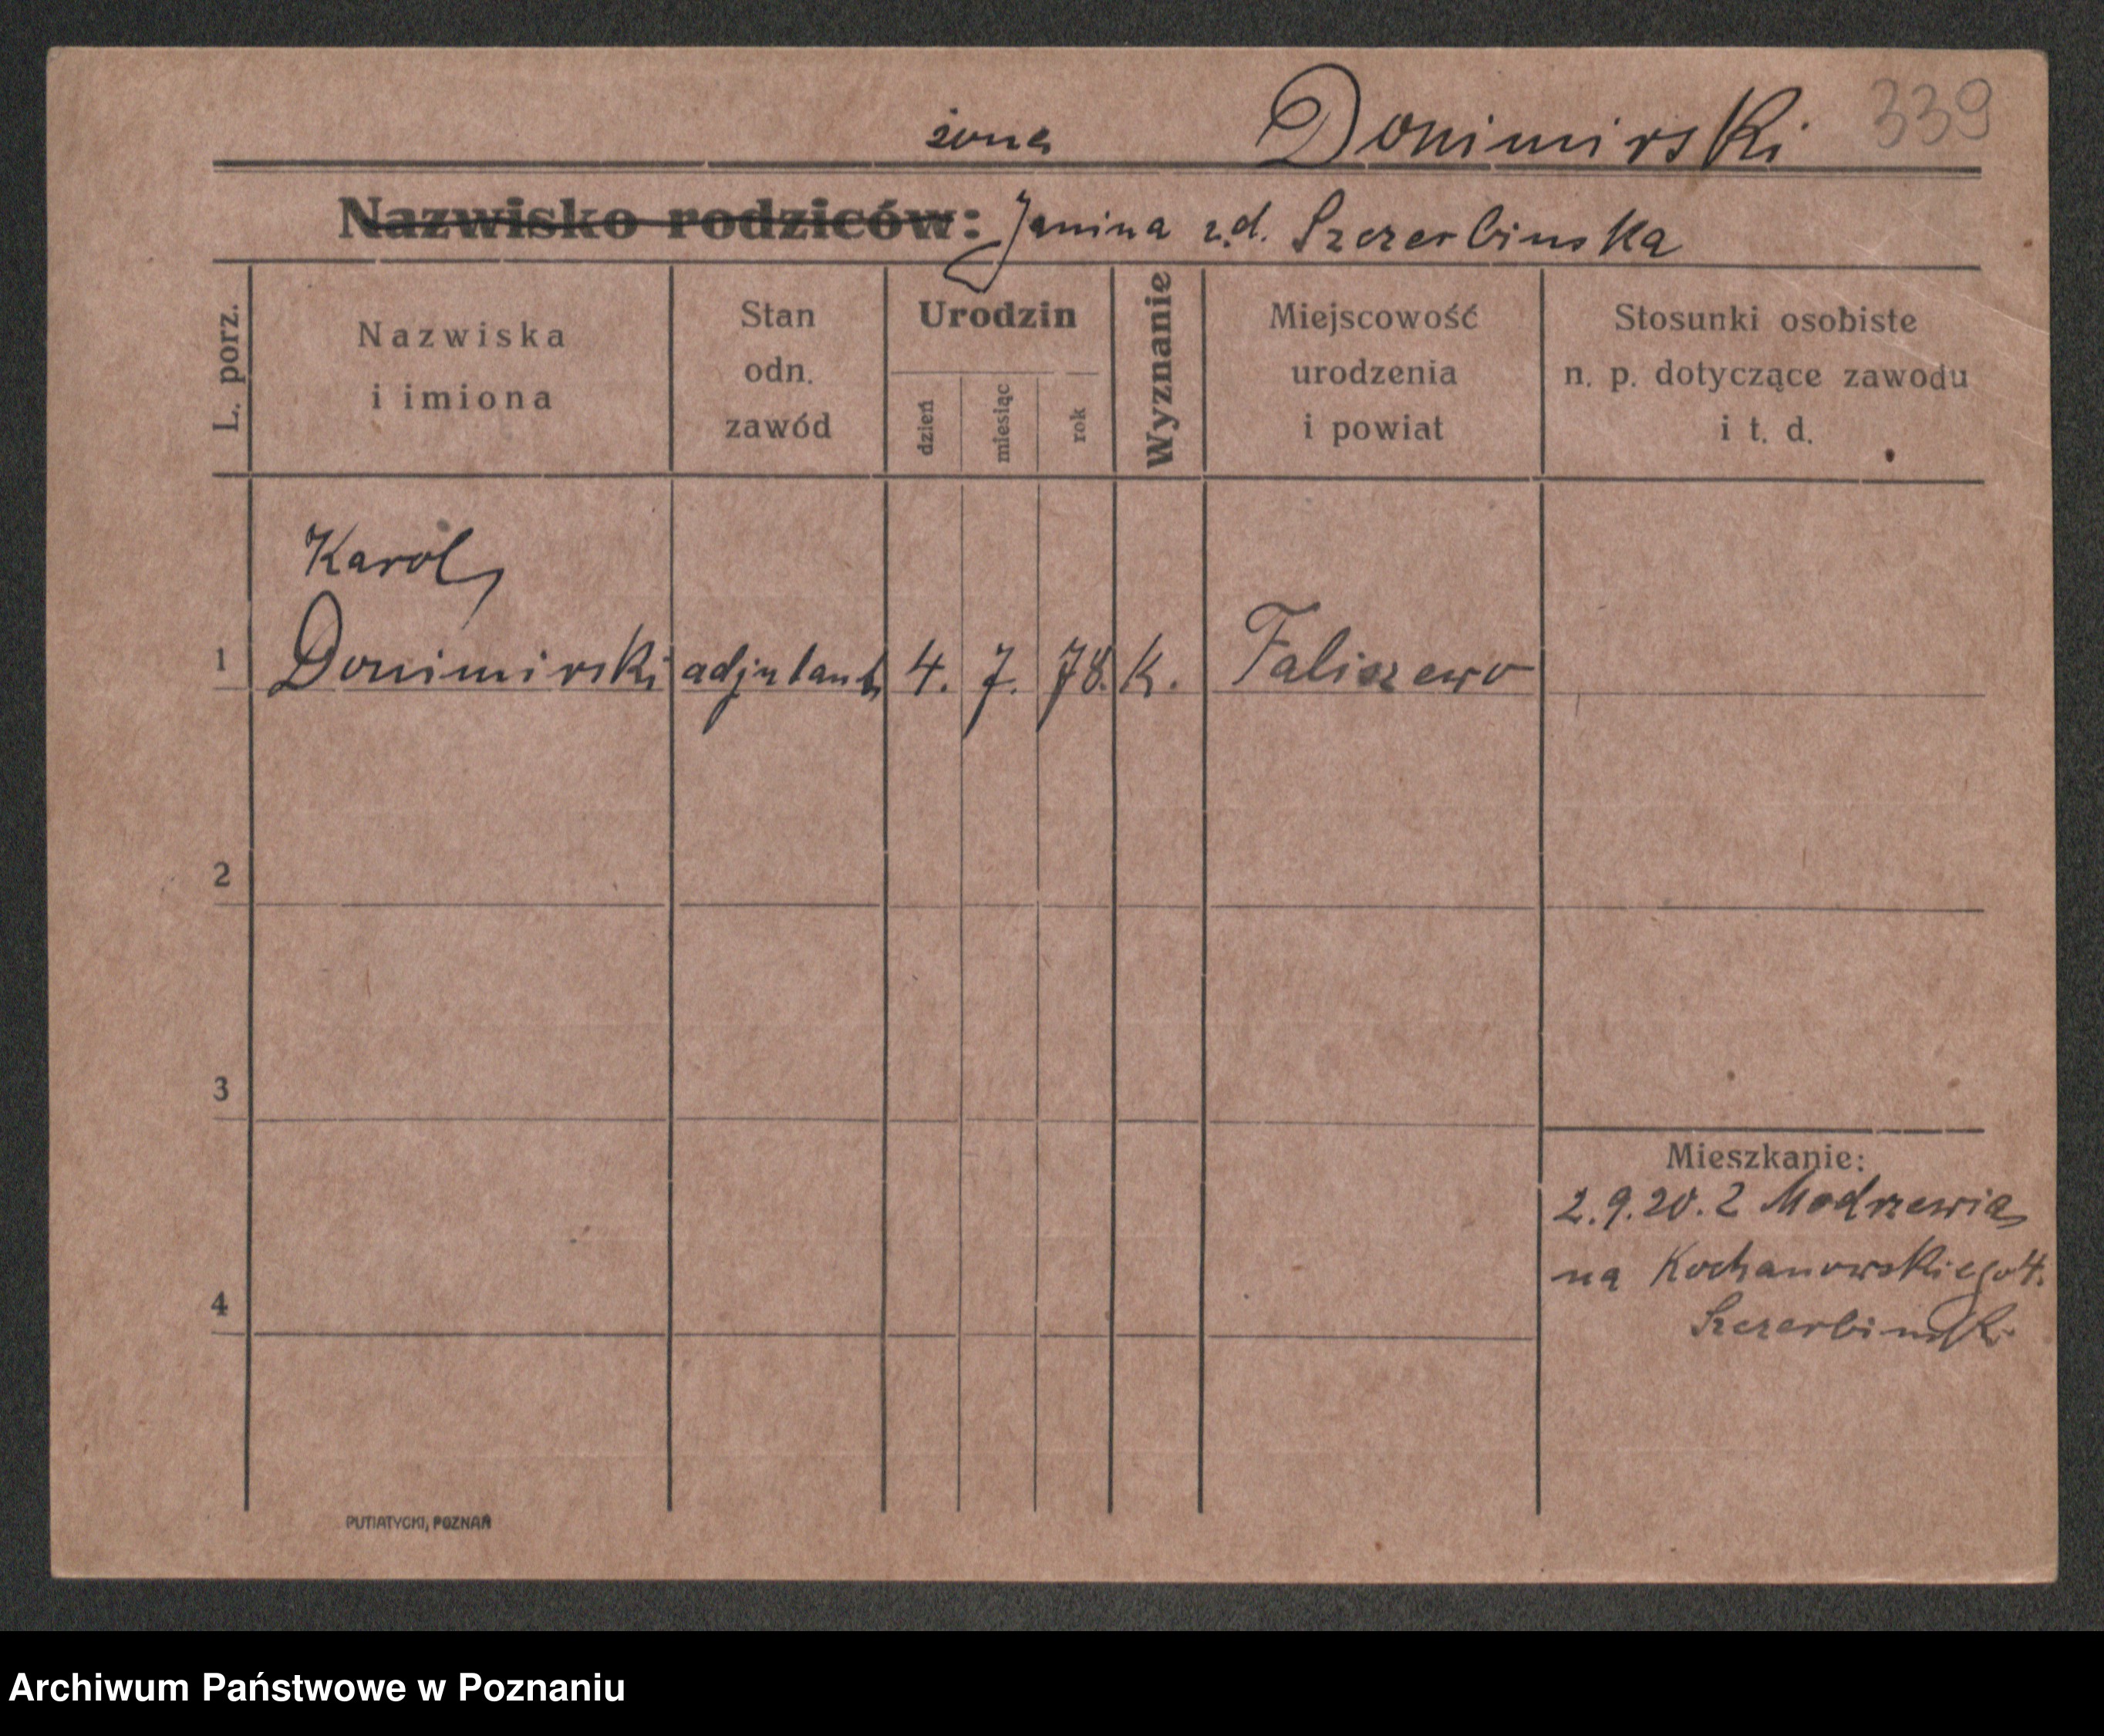 żona Donimirski 339
Nazwisko rodziców: Janina z.d. Szczerbinska
L. porz.
Nazwiska
i imiona
Stan
odn.
zawód
Urodzin
dzień
miesiąc
rok
Wyznanie
Miejscowość
urodzenia
i powiat
Stosunki osobiste
n. p. dotyczące zawodu
i t. d.
Karol
1 Donimirski adjutant 4. 7. 78. K. Faliszewo
2
3
4
Mieszkanie:
2.9.20. z Modrzewia
na Kochanowskiego 4.
Szczerbinski
PUTIATYCKI, POZNAŃ
Archiwum Państwowe w Poznaniu